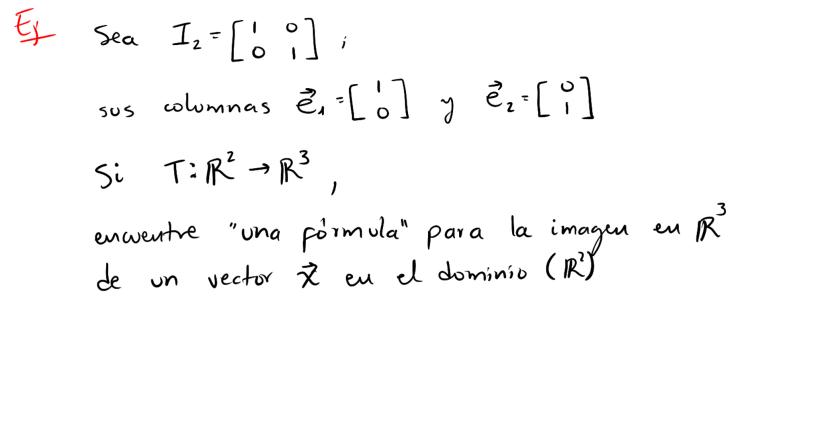 Ej Sea I₂ = [1 0; 0 1] ;
sus columnas e⃗₁ = [1; 0] y e⃗₂ = [0; 1]
Si T: ℝ² → ℝ³ ,
encuentre "una fórmula" para la imagen en ℝ³
de un vector x⃗ en el dominio (ℝ²)